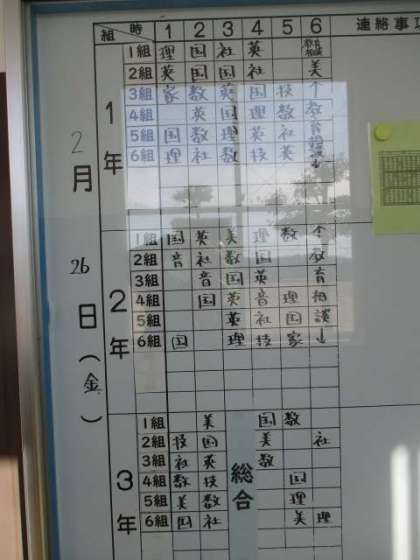 組 時 1 2 3 4 5 6 連絡事項
2月26日(金)
1年
1組 理 国 社 英
2組 英 国 国 社 美
3組 家 数 英 国 技 个
4組 英 国 理 数 教
5組 国 数 理 英 社 育
6組 理 社 数 技 英
2年
1組 国 英 美 理 数 个
2組 音 社 数 国 教
3組 音 国 英 育
4組 国 英 音 理 相
5組 英 社 国 談
6組 国 理 技 家 ↓
3年
総合
1組 美 国 数
2組 技 国 美 社
3組 社 英 数
4組 数 技 国
5組 美 数 理
6組 国 社 美 理